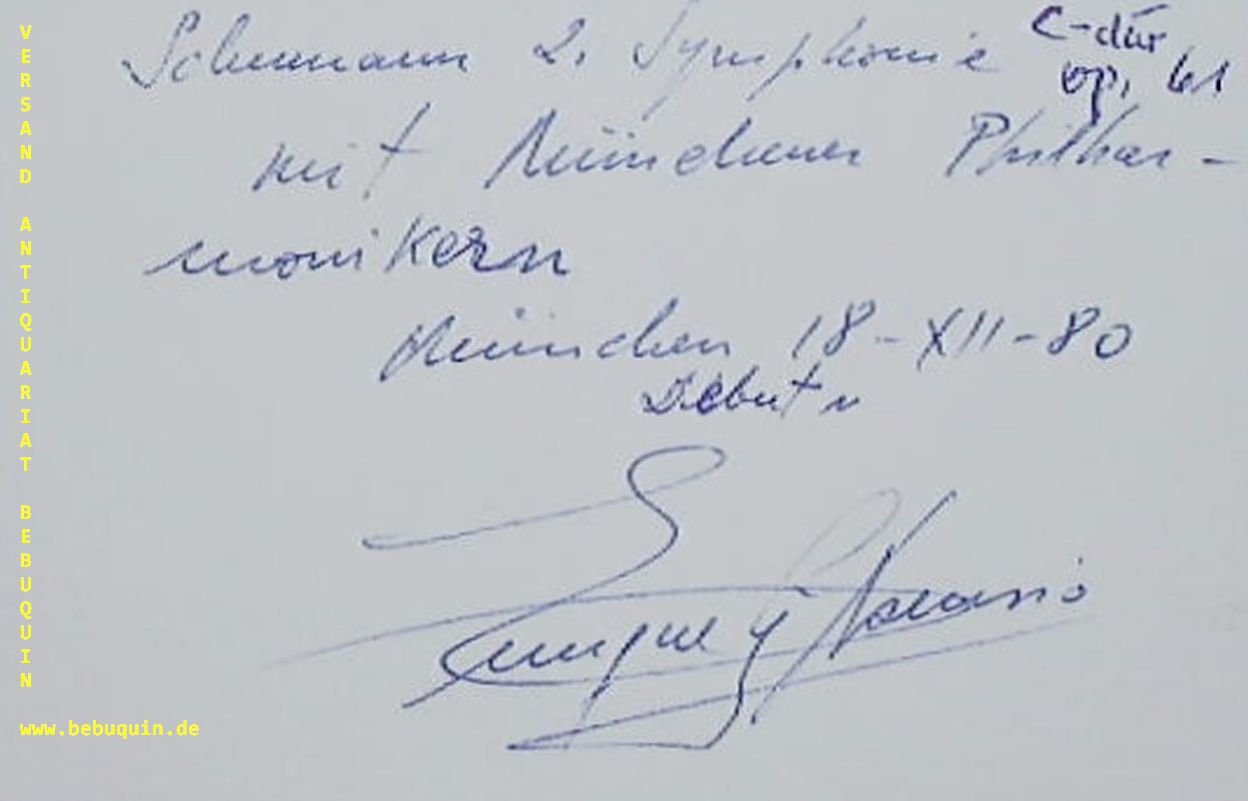 Schumann 2. Symphonie C-dur
op. 61
mit Münchener Philhar-
monikern
München 18-XII-80
Debut
Enrique
VERSAND ANTIQUARIAT BEBUQUIN
www.bebuquin.de